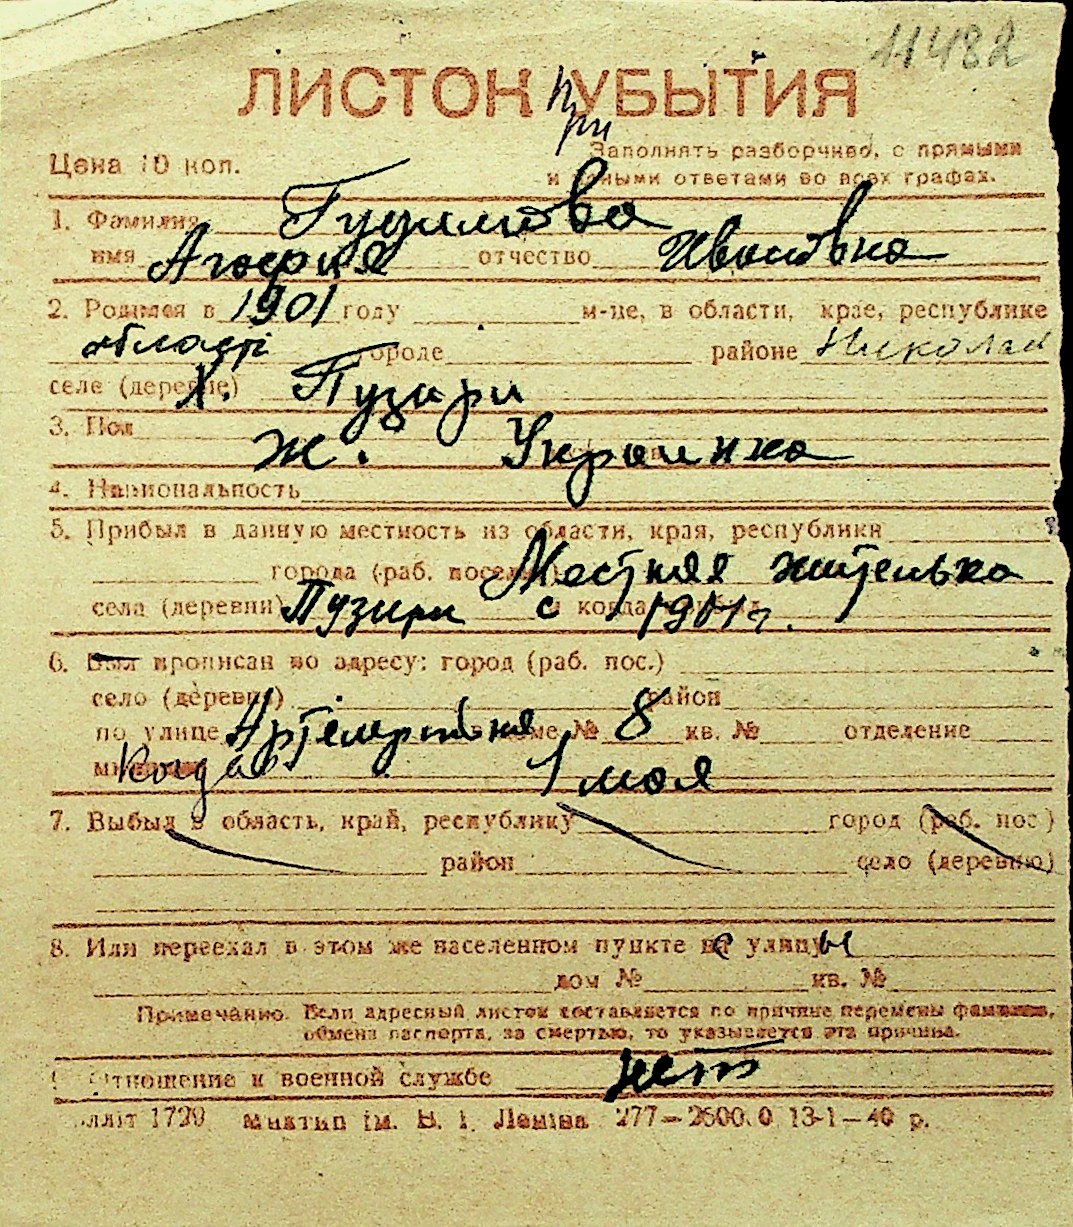 11482
ЛИСТОК УБЫТИЯ
При
Цена 10 коп.
Заполнять разборчиво, с прямыми
и ясными ответами во всех графах.
1. Фамилия Гудимова
имя отчество Ивановна
2. Родился в 1901 году м-це, в области, крае, республике
області городе районе Николаев
селе (деревне) Х. Пузири
3. Пол ж. Украинка
4. Национальность
5. Прибыл в данную местность из области, края, республики
города (раб. поселка) Местная жителька
села (деревни) Пузири с и когда прибыл 1901 г.
6. Был прописан по адресу: город (раб. пос.)
село (деревня) район
по улице доме № 8 кв. № отделение
милиции Когда 1 мая
7. Выбыл в область, край, республику город (раб. пос.)
район село (деревню)
8. Или переехал в этом же населенном пункте с улицы
дом № кв. №
Примечание. Если адресный листок составляется по причине перемены фамилии,
обмена паспорта, за смертью, то указывается эта причина.
Отношение к военной службе нет
лліт 1729 Миктип ім. В. І. Леніна 277—2600.0 13-1—40 р.